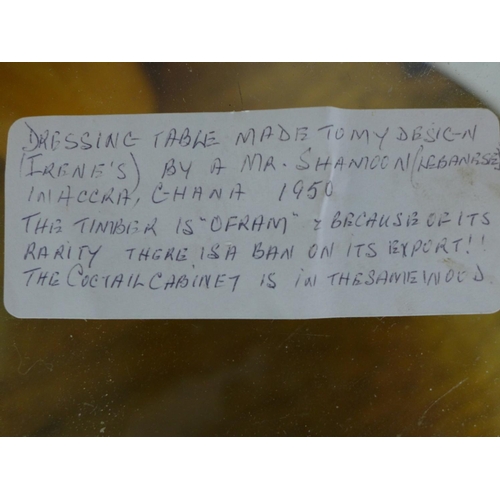 DRESSING TABLE MADE TO MY DESIGN
(IRENE'S) BY A MR. SHAMOON (LEBANESE)
IN ACCRA, GHANA 1950
THE TIMBER IS "OFRAM" & BECAUSE OF ITS
RARITY THERE IS A BAN ON ITS EXPORT!!
THE COCTAIL CABINET IS IN THE SAME WOOD